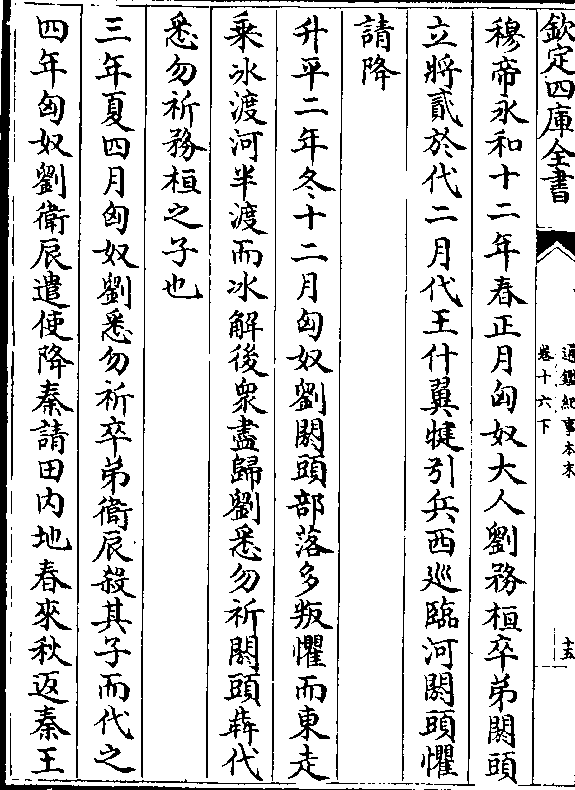 欽定四庫全書
通鑑紀事本末
卷十六下
十五
穆帝永和十二年春正月匈奴大人劉務桓卒弟閼頭
立將貳於代二月代王什翼犍引兵西巡臨河閼頭懼
請降
升平二年冬十二月匈奴劉閼頭部落多叛懼而東走
乗冰渡河半渡而冰解後衆盡歸劉悉勿祈閼頭犇代
悉勿祈務桓之子也
三年夏四月匈奴劉悉勿祈卒弟衛辰殺其子而代之
四年匈奴劉衛辰遣使降秦請田内地春來秋返秦王